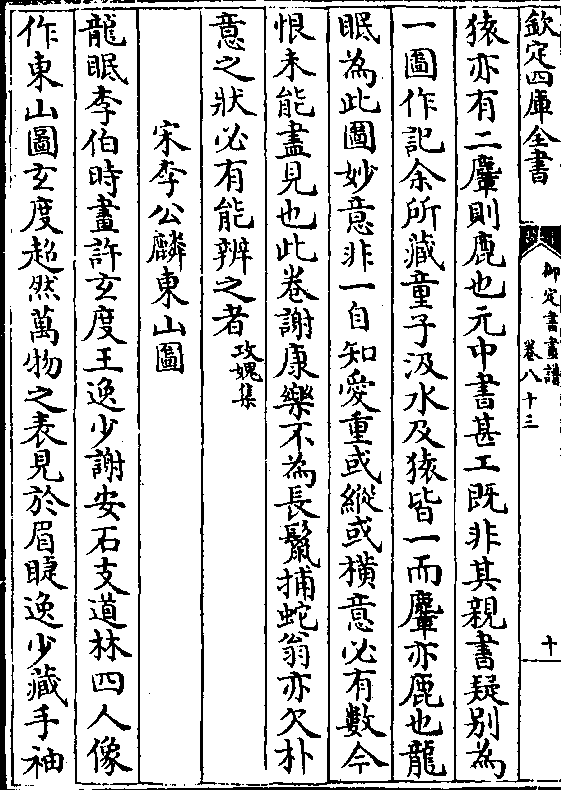 欽定四庫全書
御定書畫譜
卷八十三
十
猿亦有二麞則鹿也元中書甚工既非其親書疑别為
一圖作記余所藏童子汲水及猿皆一而麞亦鹿也龍
眠為此圖妙意非一自知愛重或縱或横意必有數今
恨未能盡見也此卷謝康樂不為長鬛捕蛇翁亦欠朴
意之狀必有能辨之者攻媿集
宋李公麟東山圖
龍眠李伯時畫許玄度王逸少謝安石支道林四人像
作東山圖玄度超然萬物之表見於眉睫逸少藏手袖